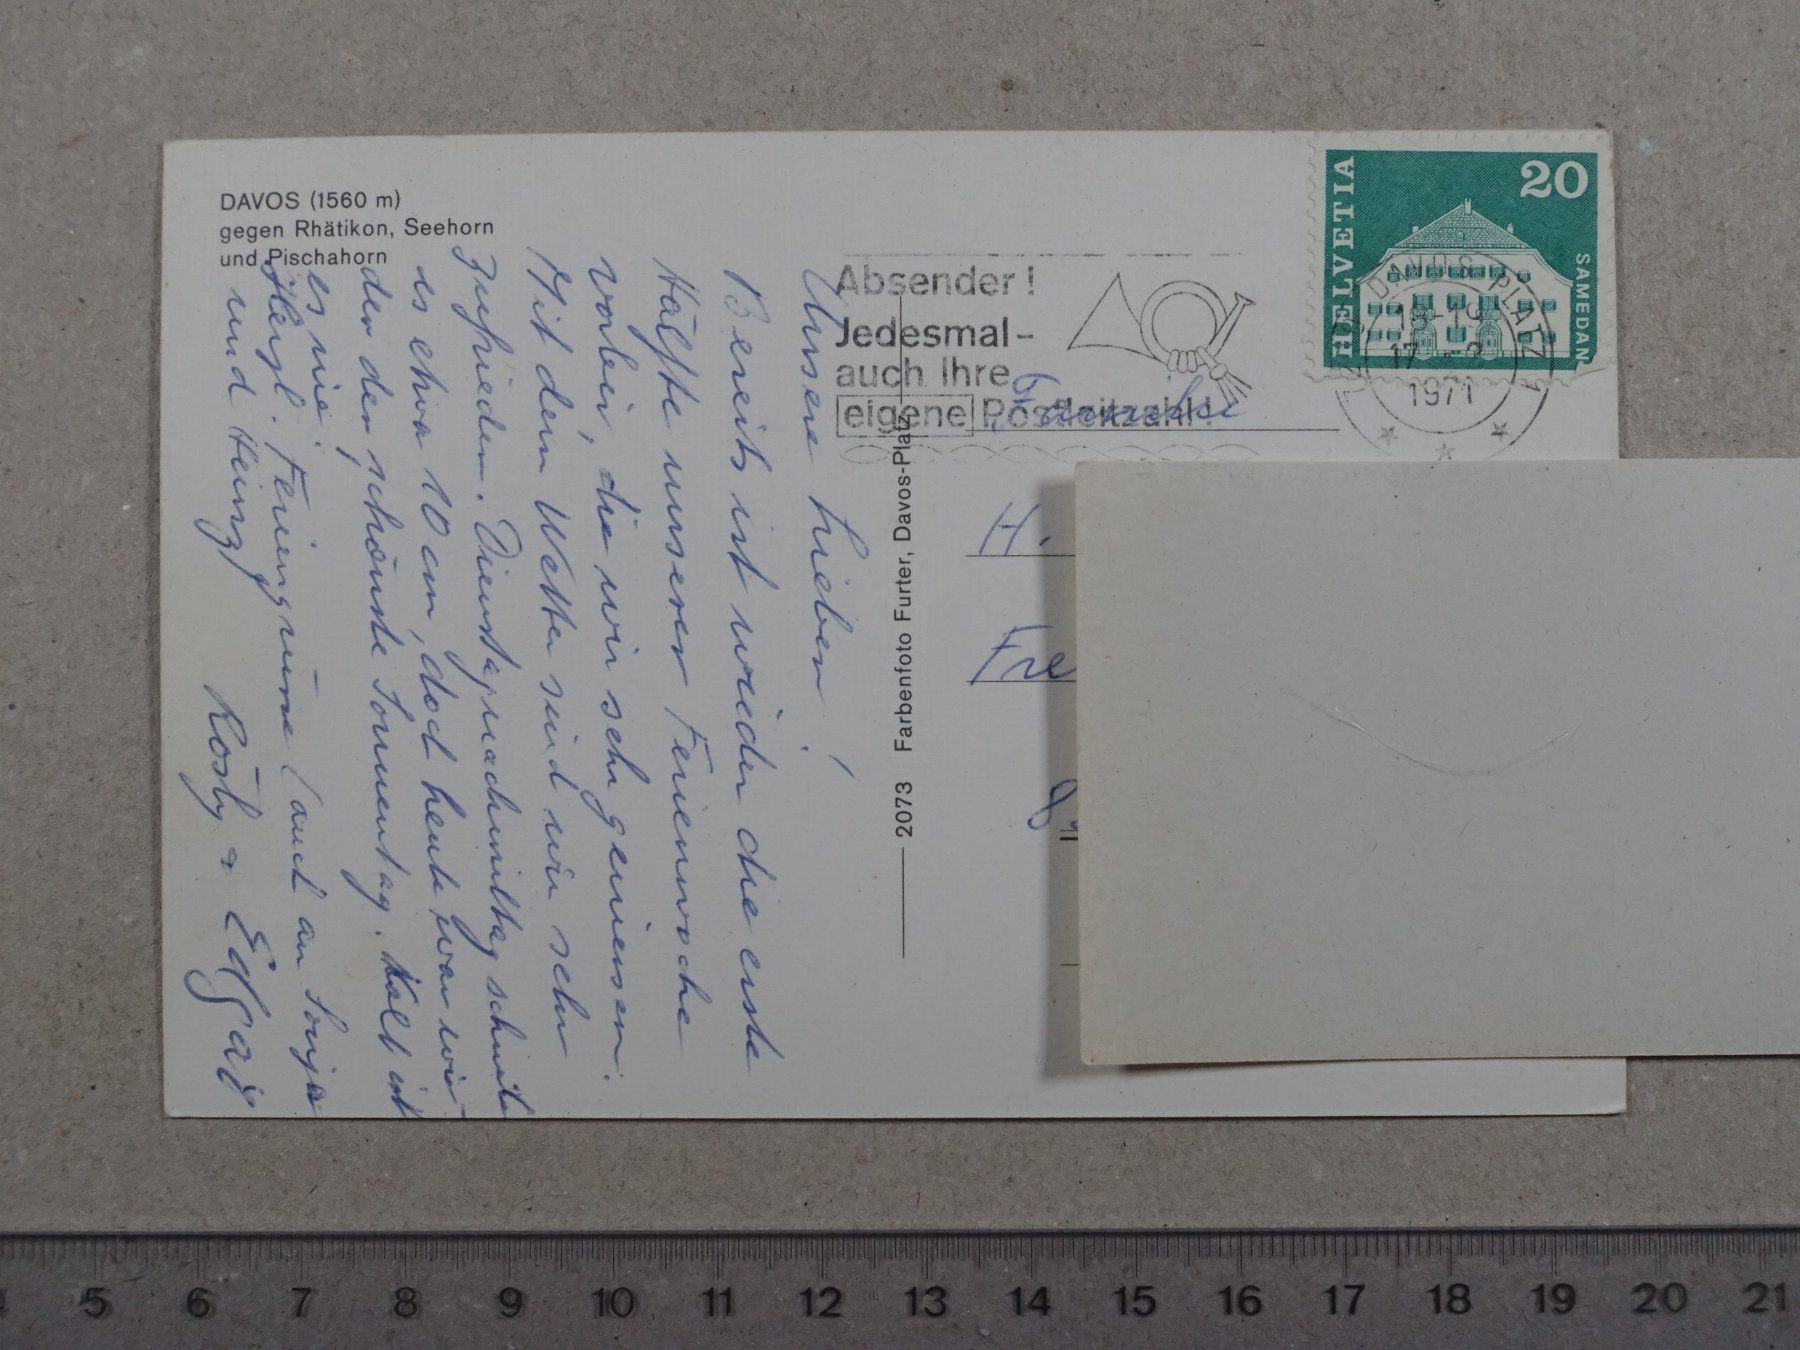 DAVOS (1560 m)
gegen Rhätikon, Seehorn
und Pischahorn
Unsere Lieben!
Bereits ist wieder die erste
Hälfte unserer Ferienwoche
vorbei, die wir sehr geniessen.
Mit dem Wetter sind wir sehr
zufrieden. Dienstagnachmittag schneite
es etwa 10 cm, doch heute war wieder
der schönste Sonnentag. Kalt ist
es nie.
Herzl. Feriengrüsse (auch an Sonja
und Heinz
Rösly + Edgar
2073 Farbenfoto Furter, Davos-Platz
Absender!
Jedesmal–
auch Ihre
eigene Postleitzahl!
HELVETIA
20
SAMEDAN
DAVOS PLATZ 1
18-19
17.-2
1971
Familie
H.
Fre
8
4 5 6 7 8 9 10 11 12 13 14 15 16 17 18 19 20 21